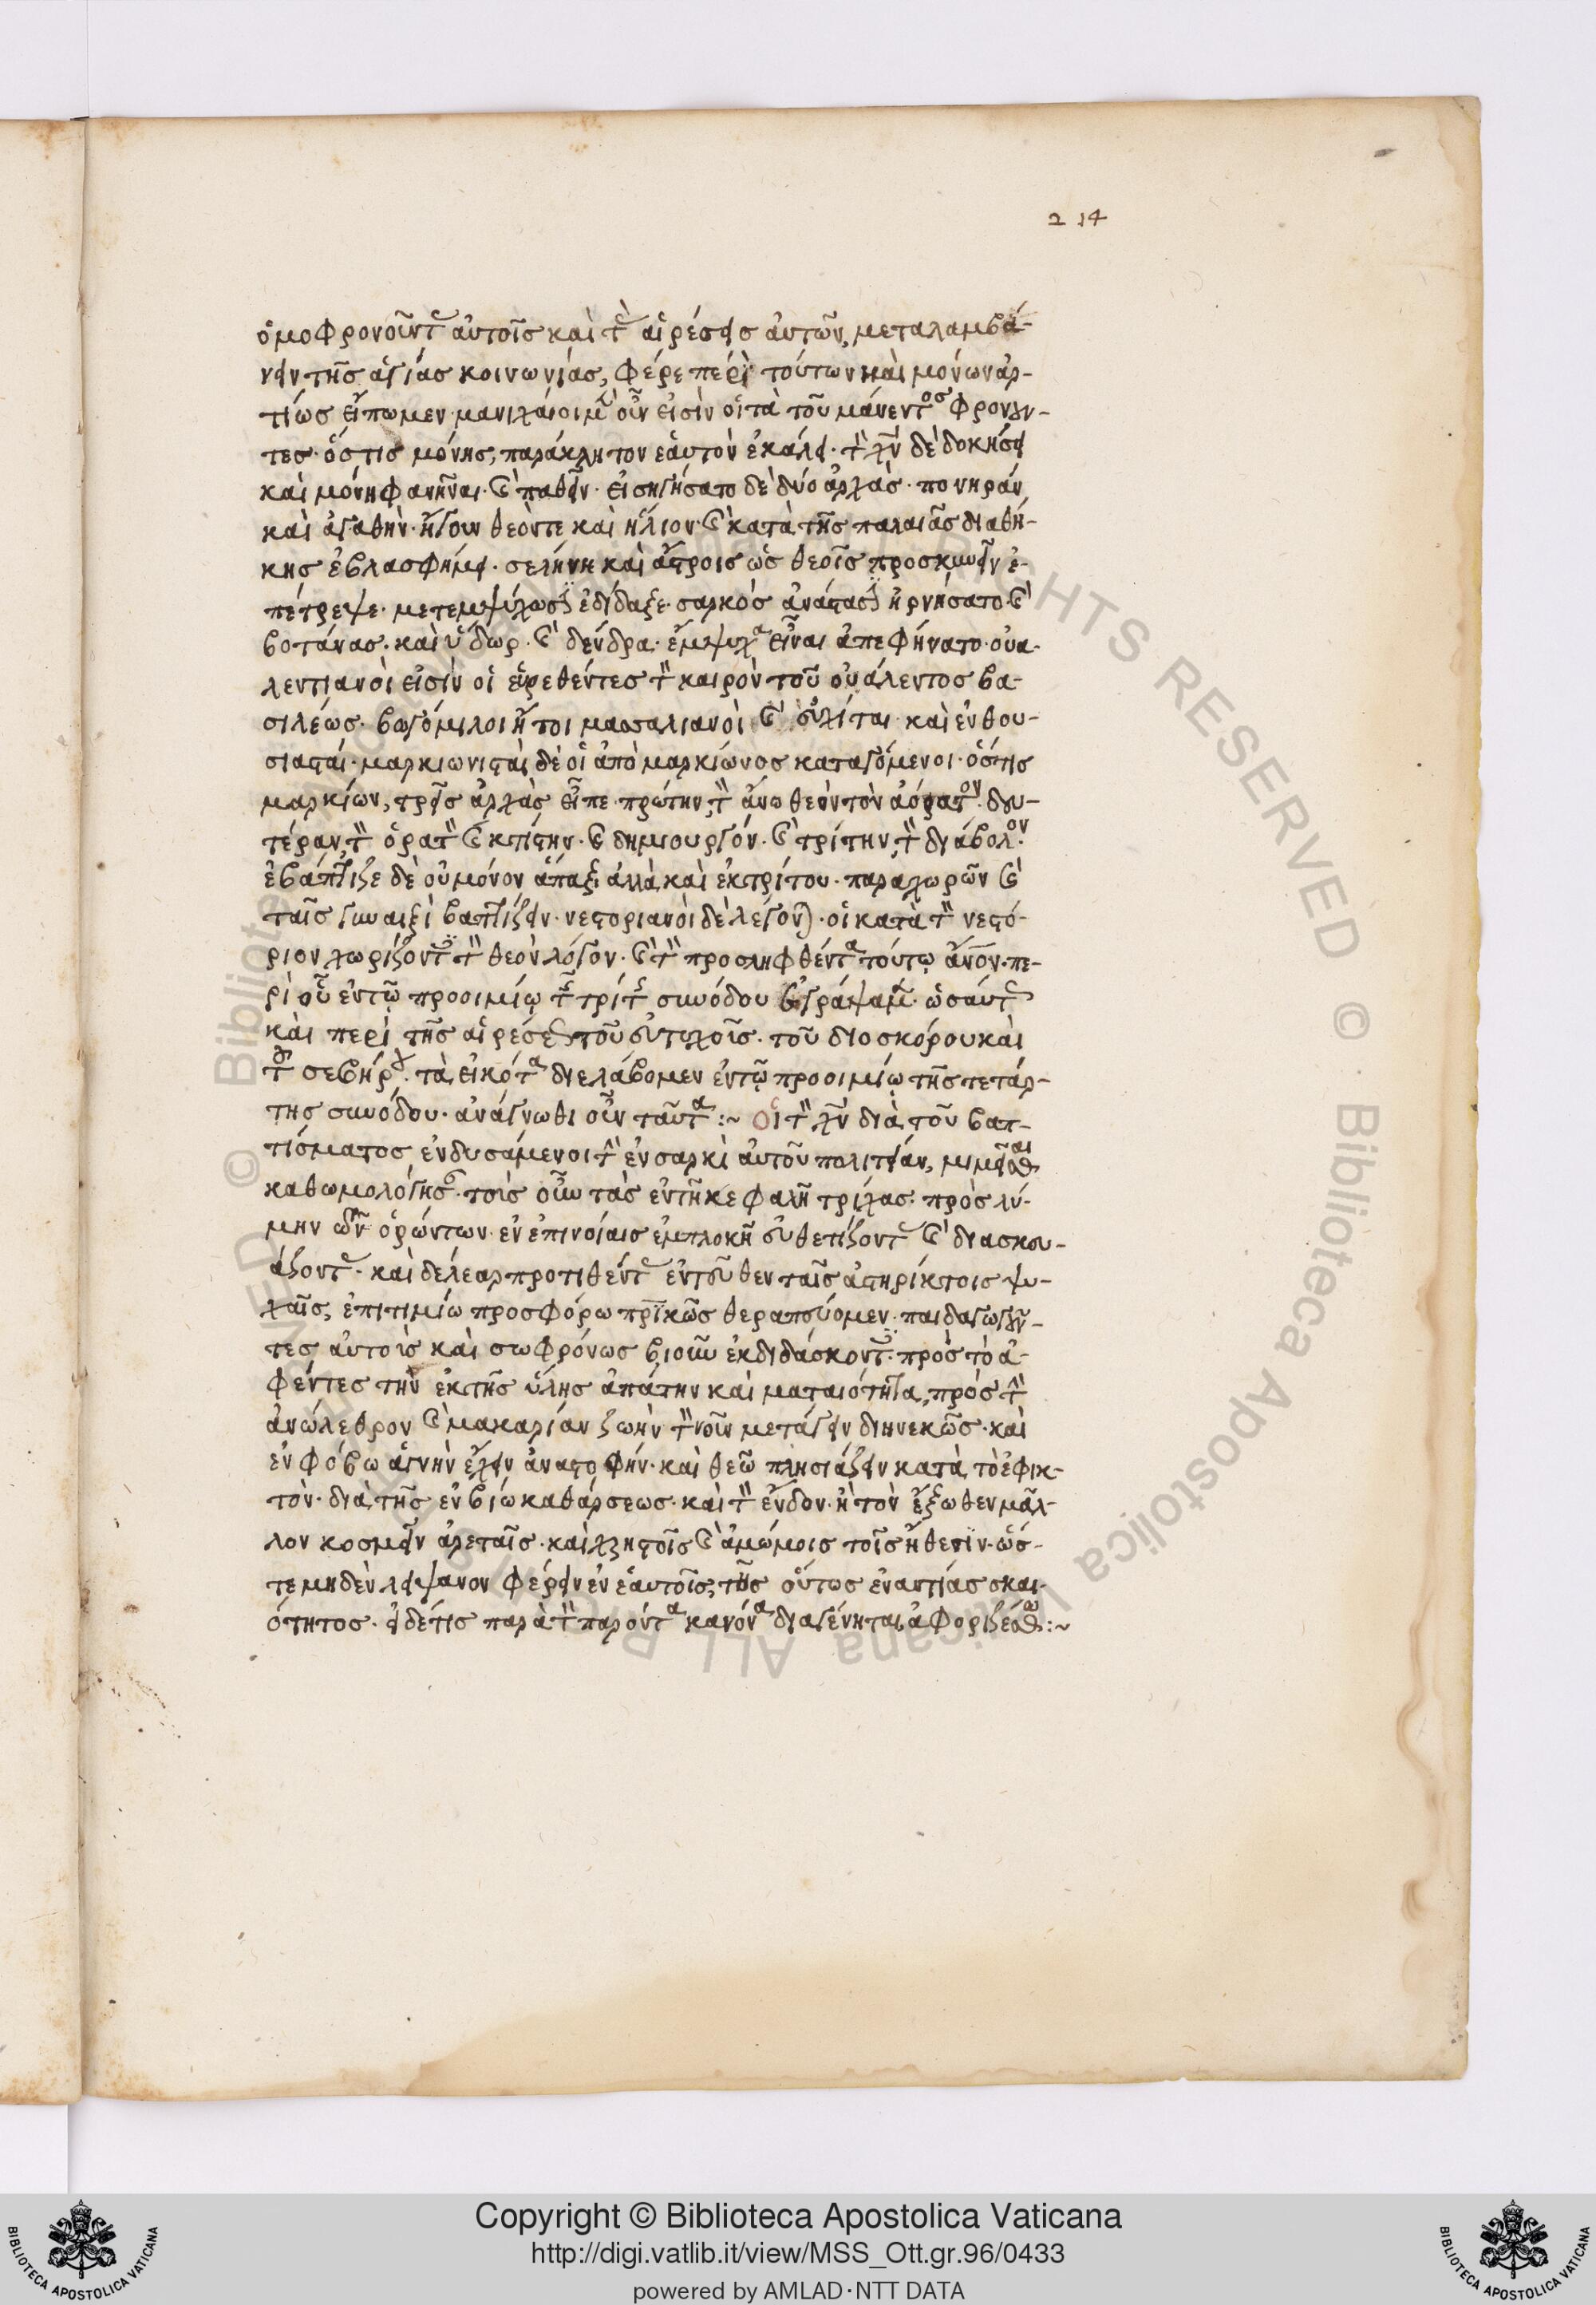 214
ὁμοφρονοῦντ αὐτοῖς καὶ τ αἱρέσεις αὐτῶν, μεταλαμβά-
νειν τῆς ἁγίας κοινωνίας, φέρε περὶ τούτων καὶ μόνων ἀρ-
τίως εἴπωμεν· μανιχαῖοι μ οὖν εἰσὶν οἱ τὰ τοῦ μάνεντος φρονοῦν-
τες· ὅστις μόνης, παράκλητον ἑαυτὸν ἐκάλει· τ χν δὲ δοκήσει
καὶ μόνη φανῆναι· καὶ παθεῖν· εἰσηγήσατο δὲ δύο ἀρχὰς· πονηράν
καὶ ἀγαθὴν· ἤγουν θεόν τε καὶ ἥλιον· καὶ κατὰ τῆς παλαιᾶς διαθή-
κης ἐβλασφήμει· σελήνη καὶ ἄστροις ὡς θεοῖς προσκυνεῖν ἐ-
πέτρεψε· μετεμψύχωσιν ἐδίδαξε· σαρκὸς ἀνάστασιν ἠρνήσατο· καὶ
βοτάνας· καὶ ὕδωρ· καὶ δένδρα· ἔμψυχα εἶναι ἀπεφήνατο· οὐα-
λεντιανοὶ εἰσὶν οἱ εὑρεθέντες τ καιρὸν τοῦ οὐάλεντος βα-
σιλέως· βογόμιλοι ἤτοι μασσαλιανοὶ καὶ εὐχίται καὶ ἐνθου-
σιασταί· μαρκιωνισταὶ δὲ οἱ ἀπὸ μαρκίωνος καταγόμενοι· ὅστις
μαρκίων, τρεῖς ἀρχὰς εἶπε· πρώτην, τ ἄνω θεὸν τὸν ἀόρατον· δευ-
τέραν, τ ὁρατ καὶ κτίστην· καὶ δημιουργόν· καὶ τρίτην, τ διάβολον·
ἐβάπτιζε δὲ οὐ μόνον ἅπαξ ἀλλὰ καὶ ἐκ τρίτου· παραχωρῶν καὶ
ταῖς γυναιξὶ βαπτίζειν· νεστοριανοὶ δὲ λέγονται· οἱ κατὰ τ νεστό-
ριον χωρίζοντες τ θεὸν λόγον· καὶ τ προσληφθέντα τούτῳ ἄνον· πε-
ρὶ οὗ ἐν τῷ προοιμίῳ τ τρίτ συνόδου ἐγράψαμ· ὡσαύτ
καὶ περὶ τῆς αἱρέσε τοῦ εὐτυχοῖς· τοῦ διοσκόρου καὶ
τ σεβήρου· τὰ εἰκότα διελάβομεν ἐν τῷ προοιμίῳ τῆς τετάρ-
της συνόδου· ἀνάγνωθι οὖν ταῦτα :~ Οἱ τ χν διὰ τοῦ βαπ-
τίσματος ἐνδυσάμενοι τ ἐν σαρκὶ αὐτοῦ πολιτείαν, μιμεῖσθαι
καθωμολόγησ· τοὺς οὖν τὰς ἐν τῇ κεφαλῇ τρίχας· πρὸς λύ-
μην τῶν ὁρώντων· ἐν ἐπινοίαις ἐμπλοκῆ εὐθετίζοντ καὶ διασκευ-
άζοντ· καὶ δέλεαρ προτιθέντ ἐντεῦθεν ταῖς ἀστηρίκτοις ψυ-
χαῖς, ἐπιτιμίω προσφόρω πρικῶς θεραπεύομεν· παιδαγωγοῦν-
τες αὐτοὺς καὶ σωφρόνως βιοῦν ἐκδιδάσκοντ· πρὸς τὸ ἀ-
φέντες τὴν ἐκ τῆς ὕλης ἀπάτην καὶ ματαιότητα, πρὸς τ
ἀνώλεθρον καὶ μακαρίαν ζωὴν τ νοῦν μετάγειν διηνεκῶς· καὶ
ἐν φόβω ἁγνὴν ἔχειν ἀναστροφήν· καὶ θεῶ πλησιάζειν κατὰ τὸ ἐφικ-
τὸν· διὰ τῆς ἐν βίω καθάρσεως· καὶ τ ἔνδον· ἢ τὸν ἔξωθεν μᾶλ-
λον κοσμεῖν ἀρεταῖς· καὶ χρηστοῖς καὶ ἀμώμοις τοῖς ἤθεσιν· ὥσ-
τε μηδὲν λείψανον φέρειν ἐν ἑαυτοῖς, τῆς οὕτως ἐναντίας σκαι-
ότητος· εἰ δέ τις παρὰ τ παρόντα κανόνα διαγένηται, ἀφοριζέσθω :~
Copyright © Biblioteca Apostolica Vaticana
http://digi.vatlib.it/view/MSS_Ott.gr.96/0433
powered by AMLAD·NTT DATA